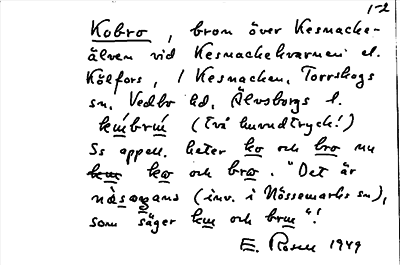 1-2
Kobro, bron över Kesnacke-
älven vid Kesnackekvarnen el.
Kölfors, i Kesnacken, Torrskogs
sn, Vedbo hd, Älvsborgs l.
(två huvudtryck!)
Ss appell. heter ko och bro nu
ko och bro. "Det är
(inv. i Nössemarks sn),
som säger och "!
E. Rosen 1949